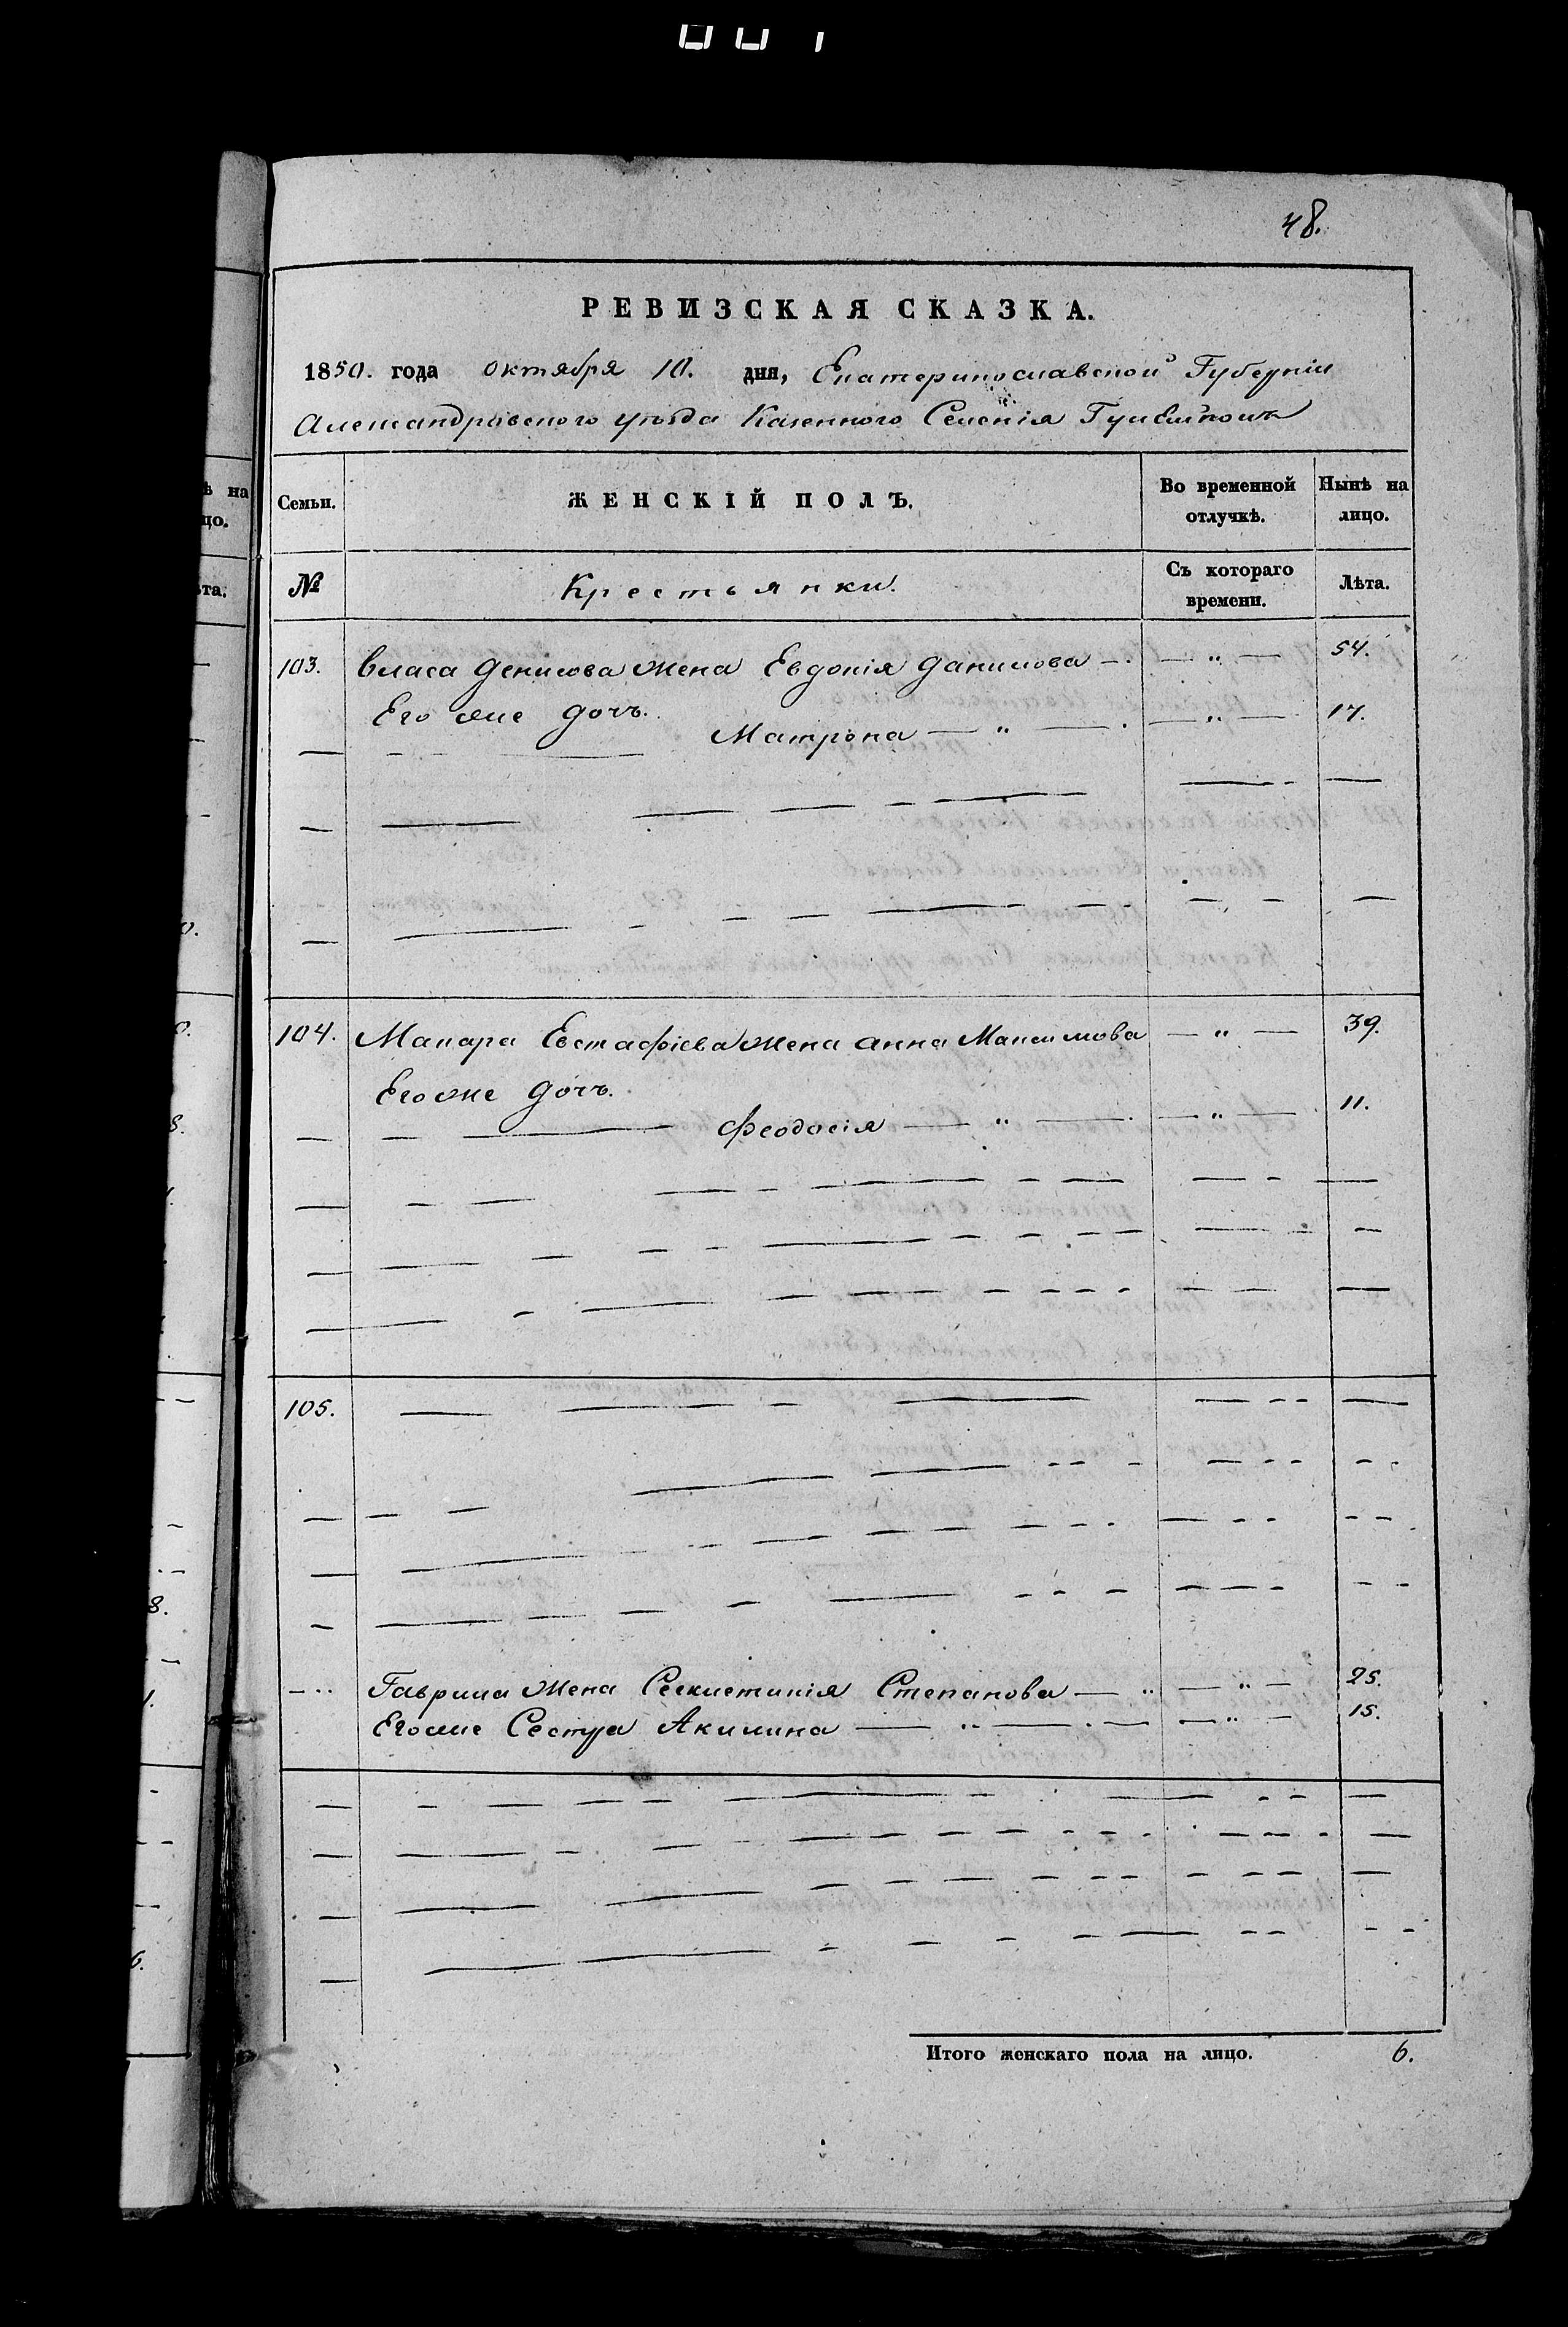 48.
РЕВИЗСКАЯ СКАЗКА.
1850. года октября 10. дня, Екатеринославской Губерніи
Александровского уѣзда Казенного Селенія
Семьи. ЖЕНСКІЙ ПОЛЪ. Во временной отлучкѣ. Нынѣ на лицо.
№ Крестьянки. Съ котораго времени. Лѣта.
103. Власа Денисова жена Евдокія Данилова — „ — 54.
Его же дочь.
Матрона — „ — — „ — 17.
104. Макара Евстафіева жена Анна Максимова — „ — 39.
Его же дочь.
Феодосія — „ — — „ — 11.
105.
Гаврила жена Степанова — „ — „ — 25.
Его же Сестра Акилина — „ — — „ — 15.
Итого женскаго пола на лицо. 6.